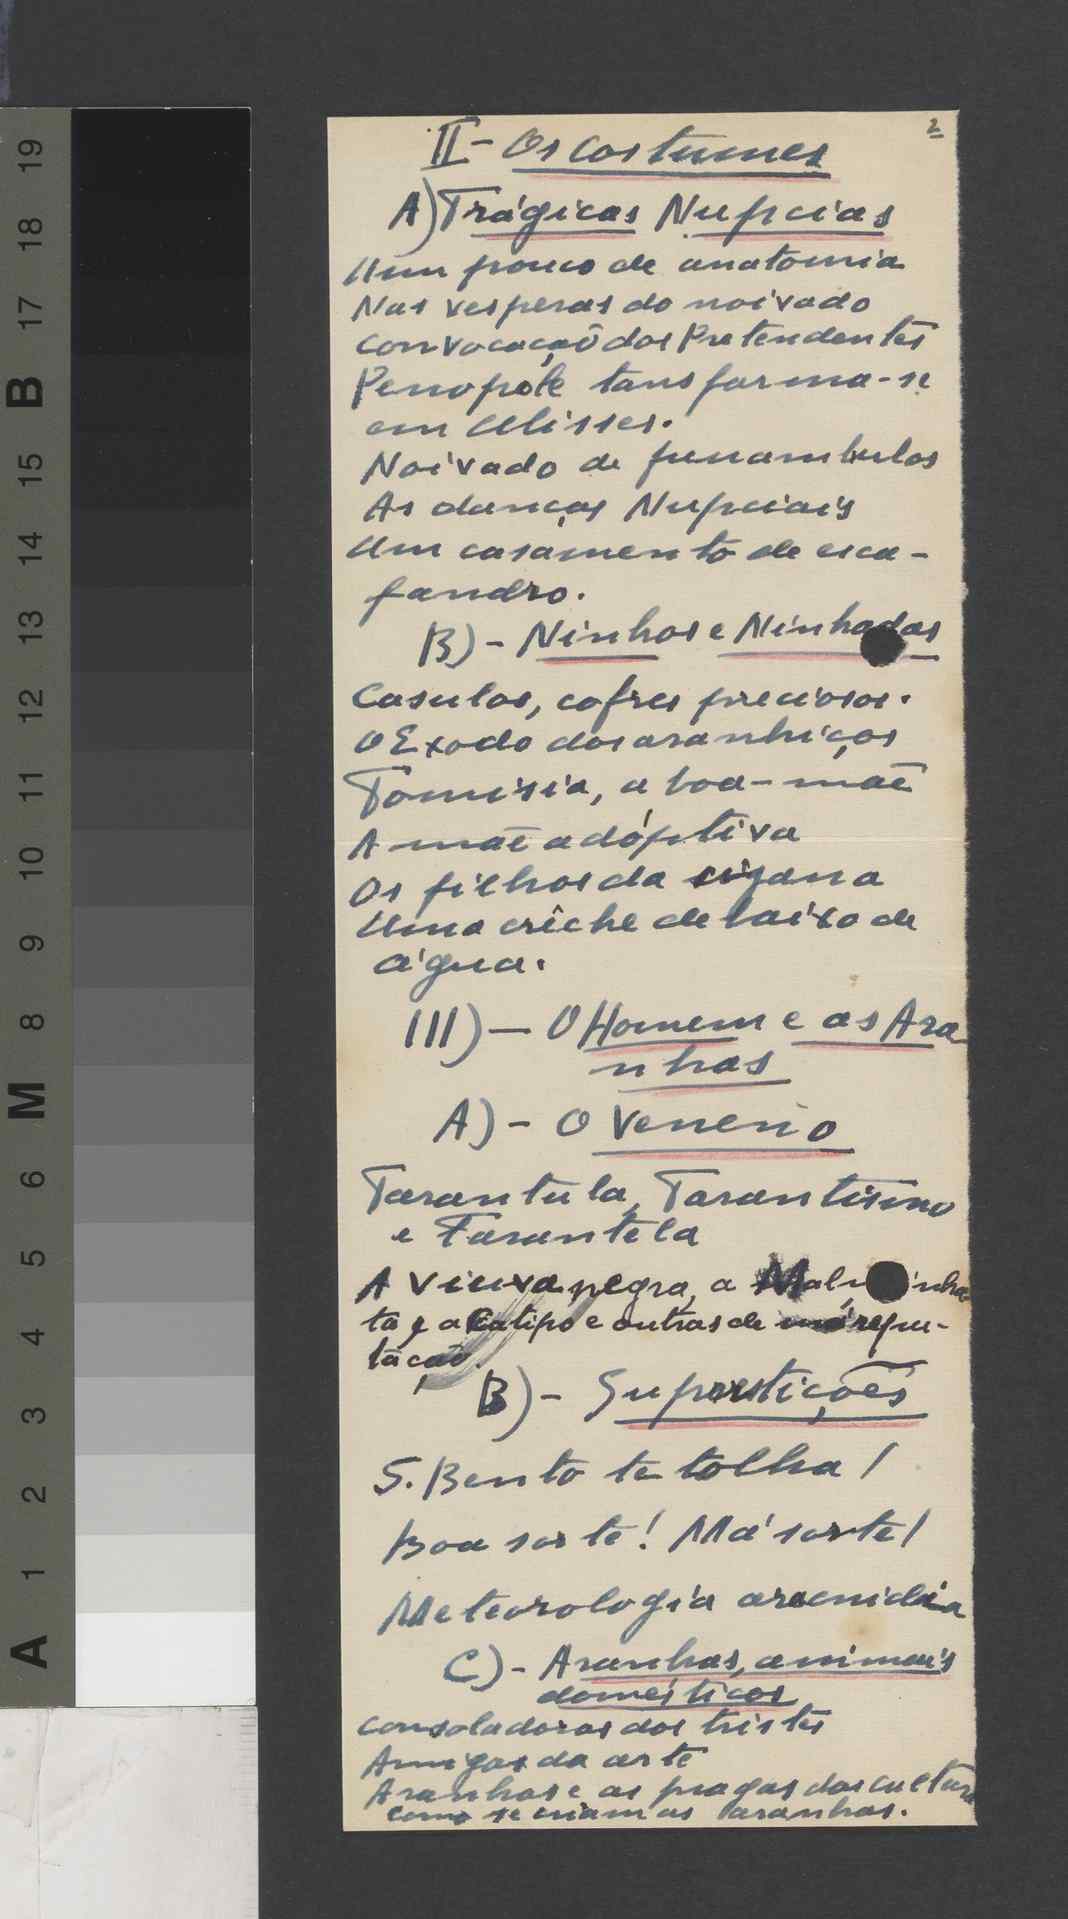 2
II - Os costumes
A) Trágicas Nupcias
Um pouco de anatomia
Nas vesperas do noivado
Convocação dos Pretendentes
Penopole tansforma-se
em Ulisses.
Noivado de funambulos
As danças Nupciais
Um casamento de esca-
fandro.
B) - Ninhos e Ninhadas
Casulos, cofres preciosos.
O Exodo dos aranhiços
Tomisia, a boa-mãe
A mãe adóptiva
Os filhos da cigana
Uma crêche debaixo de
água.
III) - O Homem e as Ara
nhas
A) - O Veneno
Tarantula, Tarantismo
e Tarantela
A Viuva negra, a
ta e a Latipo e outras de má repu-
tação.
B) - Superstições
S. Bento te tolha!
Boa sorte! Má sorte!
Meteorologia
C) - Aranhas, animais
domésticos
Consoladoras dos tristes
Amigas da arte
Aranhas e as pragas das cultura
Como se criam as aranhas.
19
18
17
B
15
14
13
12
11
10
9
8
M
6
5
4
3
2
1
A